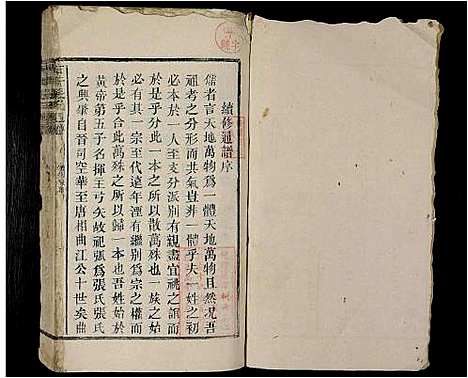 續修通譜序
儒者言天地萬物為一體天地萬物且然况吾
祖考之分形而共氣者豈非一體乎夫一姓之初
必本於一人至支分派别有親盡宜祧之詎而
必有其一宗至代遠年湮有繼别為宗之權而
於是乎分此一本之所以散萬殊也一族之始
於是乎合此萬殊之所以歸一本也吾姓始於
黃帝第五子名揮主弓矢故祀張為張氏張氏
之興肇自晉司空華至唐相曲江公十世矣曲